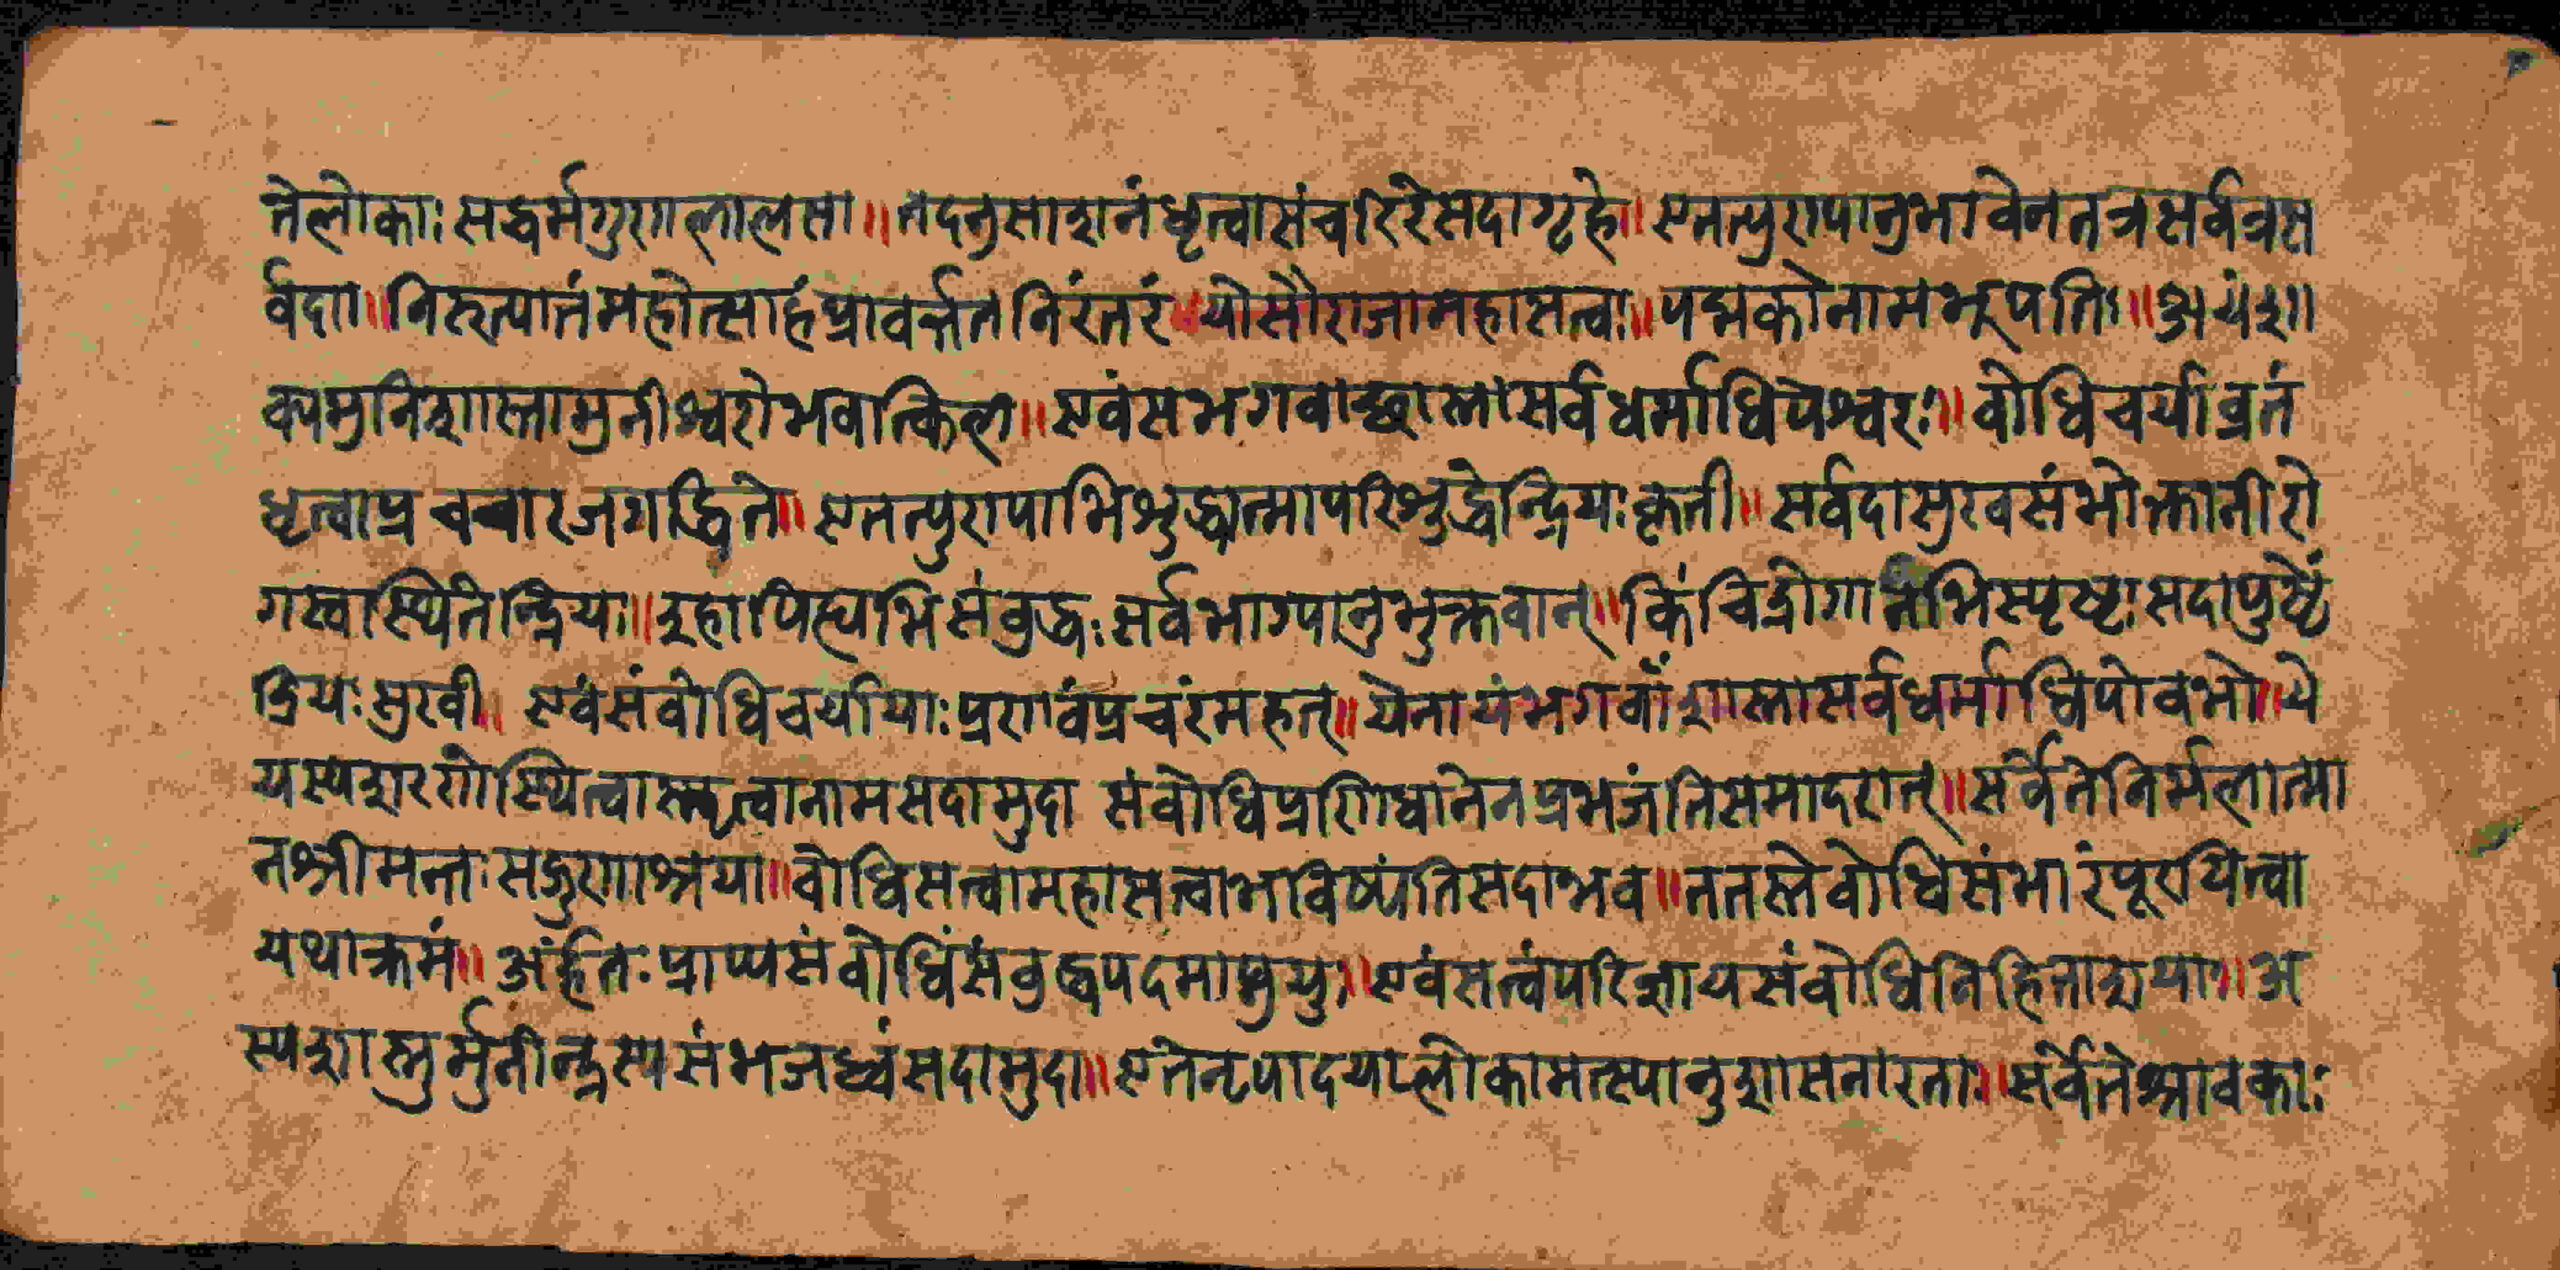 तेलोकाः सद्धर्मगुणलालसा॥ तदनुसाशनंधृत्वासंचरिरेसदागृहे॥ एतत्पुण्यानुभावेनतत्रसर्वत्रस
र्वदा॥ निरुत्पातंमहोत्साहंप्रावर्त्ततनिरंतरं॥ योसौराजामहासत्वः॥ पद्मकोनामभूपतिः॥ अयंशा
क्यमुनिशास्तामुनीश्वरोभवत्किल॥ एवंसभगवाञ्छास्तासर्वधर्माधिपेश्वरः॥ वोधिचर्याव्रतं
धृत्वाप्रचचारजगद्धिते॥ एतत्पुण्याभिशुद्ध्यत्मापरिशुद्धेन्द्रियःकृती॥ सर्वदासुखसंभोक्तानीरो
गस्वास्थितेन्द्रियः॥ इहापिह्यभिसंवुद्धः सर्वभाग्यानुभुक्तवान्॥ किंचिद्रोगानभिस्पृष्टः सदापुष्टें
द्रियः सुखी॥ एवंसंवोधिचर्यायाः प्रणवंप्रचरंमहत्॥ येनायंभगवाँशास्तासर्वधर्माधिपोवभौ॥ ये
यस्यशरणेस्थित्वास्मृत्वानामसदामुदा संवोधिप्रणिधानेनप्रभजंतिसमादरात्॥ सर्वेतेनिर्मलात्मा
नश्रीमन्तः सद्गुणाश्रया॥ वोधिसत्त्वामहासत्त्वाभविष्यंतिसदाभव॥ ततस्तेवोधिसंभारंपूरयित्वा
यथाक्रमं॥ अर्हंतः प्राप्यसंवोधिंसंवुद्धपदमाप्नुयुः॥ एवंसत्त्वंपरिज्ञायसंवोधिनिहिताशयाः॥ अ
स्यशास्तुर्मुनीन्द्रस्यसंभजध्वंसदामुदा॥ एतेन्यपादयालोकामत्स्यानुशासनारताः॥ सर्वेतेश्रावकाः